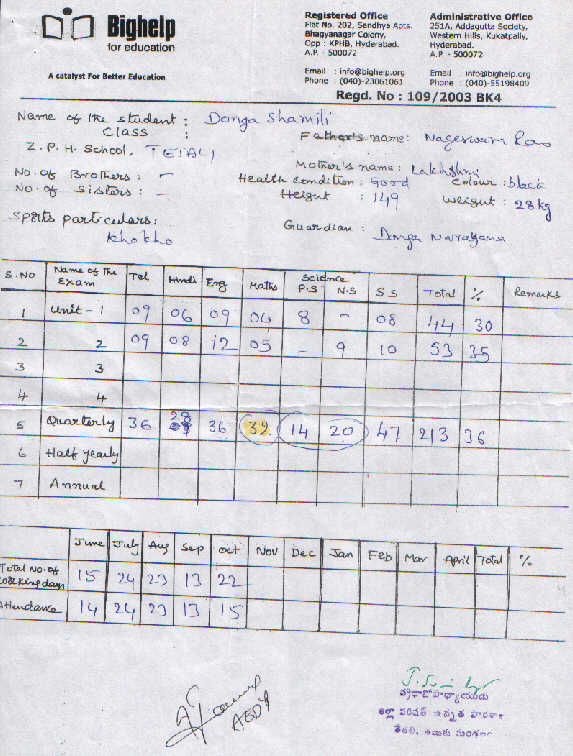 Bighelp
for education
A catalyst For Better Education
Registered Office
Flat No. 202, Sandhya Apts.
Bhagyanagar Colony,
Opp : KPHB, Hyderabad.
A.P. - 500072
Email : info@bighelp.org
Phone : (040)-23061061
Administrative Office
251A, Addagutta Society,
Western Hills, Kukatpally,
Hyderabad.
A.P. - 500072
Email : info@bighelp.org
Phone : (040)-55198409
Regd. No : 109/2003 BK4
Name of the student : Donga Shamili
Class : Father's name: Nageswara Rao
Z.P.H. School. TETALI
Mother's name: Lakhshmi
No. of Brothers : - Health condition : Good Colour : black
No. of Sisters : - Height : 149 Weight : 28 kg
Sports particulars: Guardian : Donga Narayana
Khokho
S.NO Name of the Exam Tel Hindi Eng Maths Science P.S N.S S S Total % Remarks
1 Unit - 1 09 06 09 06 8 - 08 44 30
2 2 09 08 12 05 - 9 10 53 35
3 3
4 4
5 Quarterly 36 28 36 32 14 20 47 213 36
6 Half yearly
7 Annual
June July Aug Sep Oct Nov Dec Jan Feb Mar April Total %
Total No. of working days 15 24 23 13 22
Attendance 14 24 23 13 15